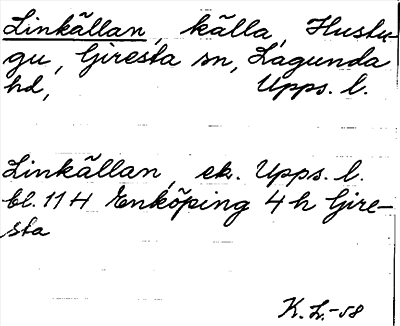 Linkällan, källa, Hustu-
gu, Giresta sn, Lagunda
hd, Upps. l.
Linkällan, ek. Upps. l.
bl. 114 Enköping 4 h Gire-
sta
K.L.-58